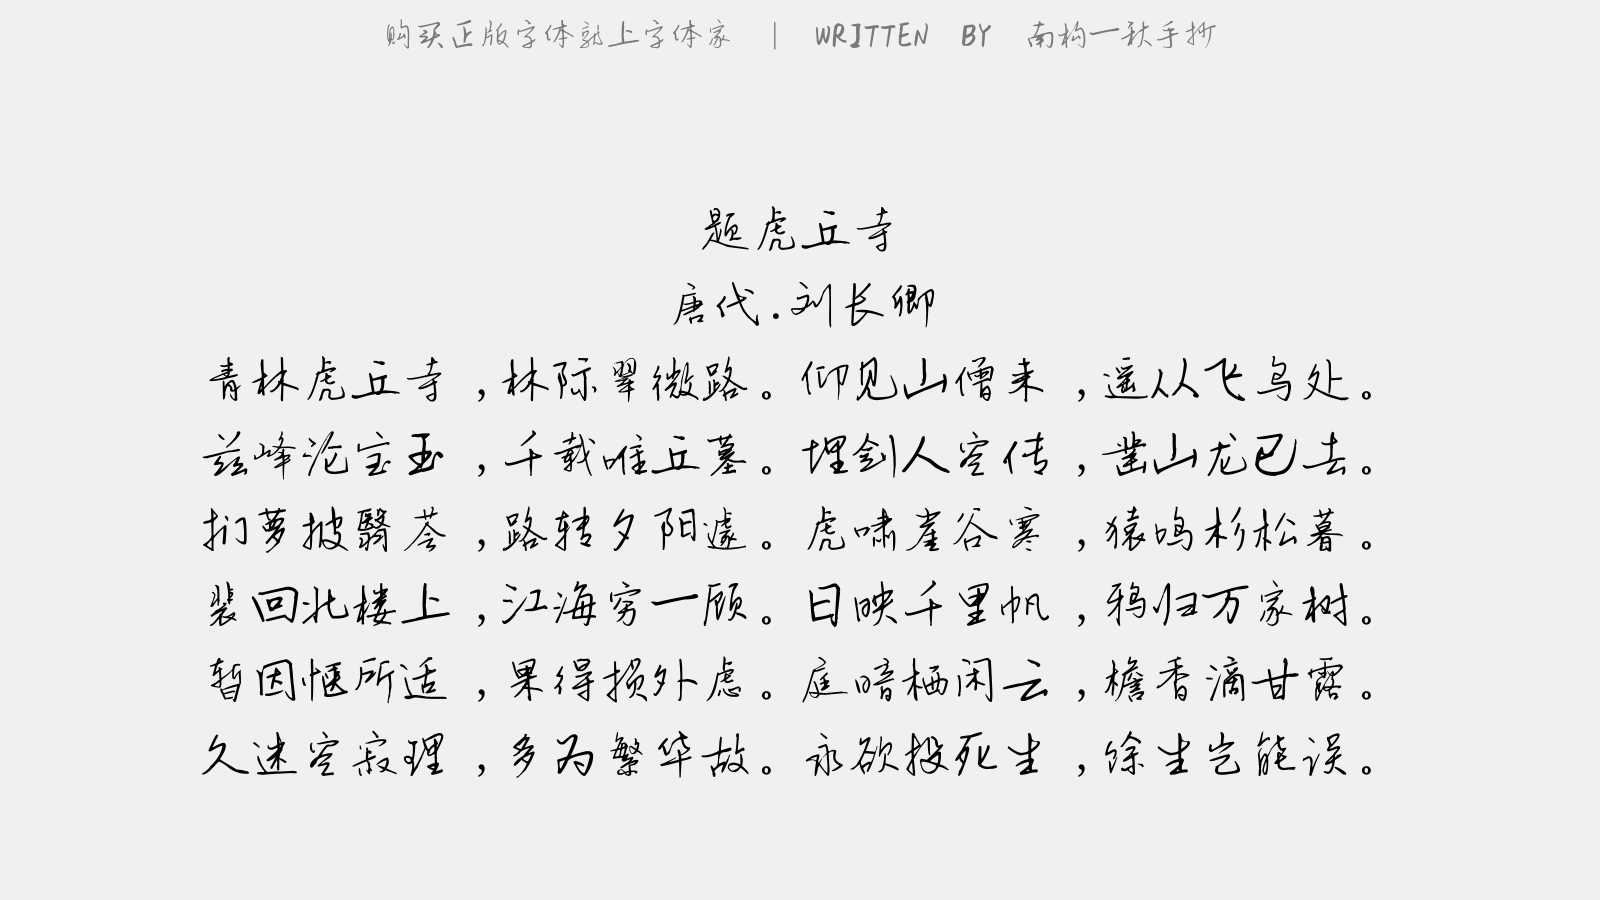 购买正版字体就上字体家 | WRITTEN BY 南构一秋手抄
题虎丘寺
唐代.刘长卿
青林虎丘寺,林际翠微路。仰见山僧来,遥从飞鸟处。
兹峰沦宝玉,千载唯丘墓。埋剑人空传,凿山龙已去。
扪萝披翳荟,路转夕阳遽。虎啸崖谷寒,猿鸣杉松暮。
裴回北楼上,江海穷一顾。日映千里帆,鸦归万家树。
暂因惬所适,果得损外虑。庭暗栖闲云,檐香滴甘露。
久迷空寂理,多为繁华故。永欲投死生,馀生岂能误。